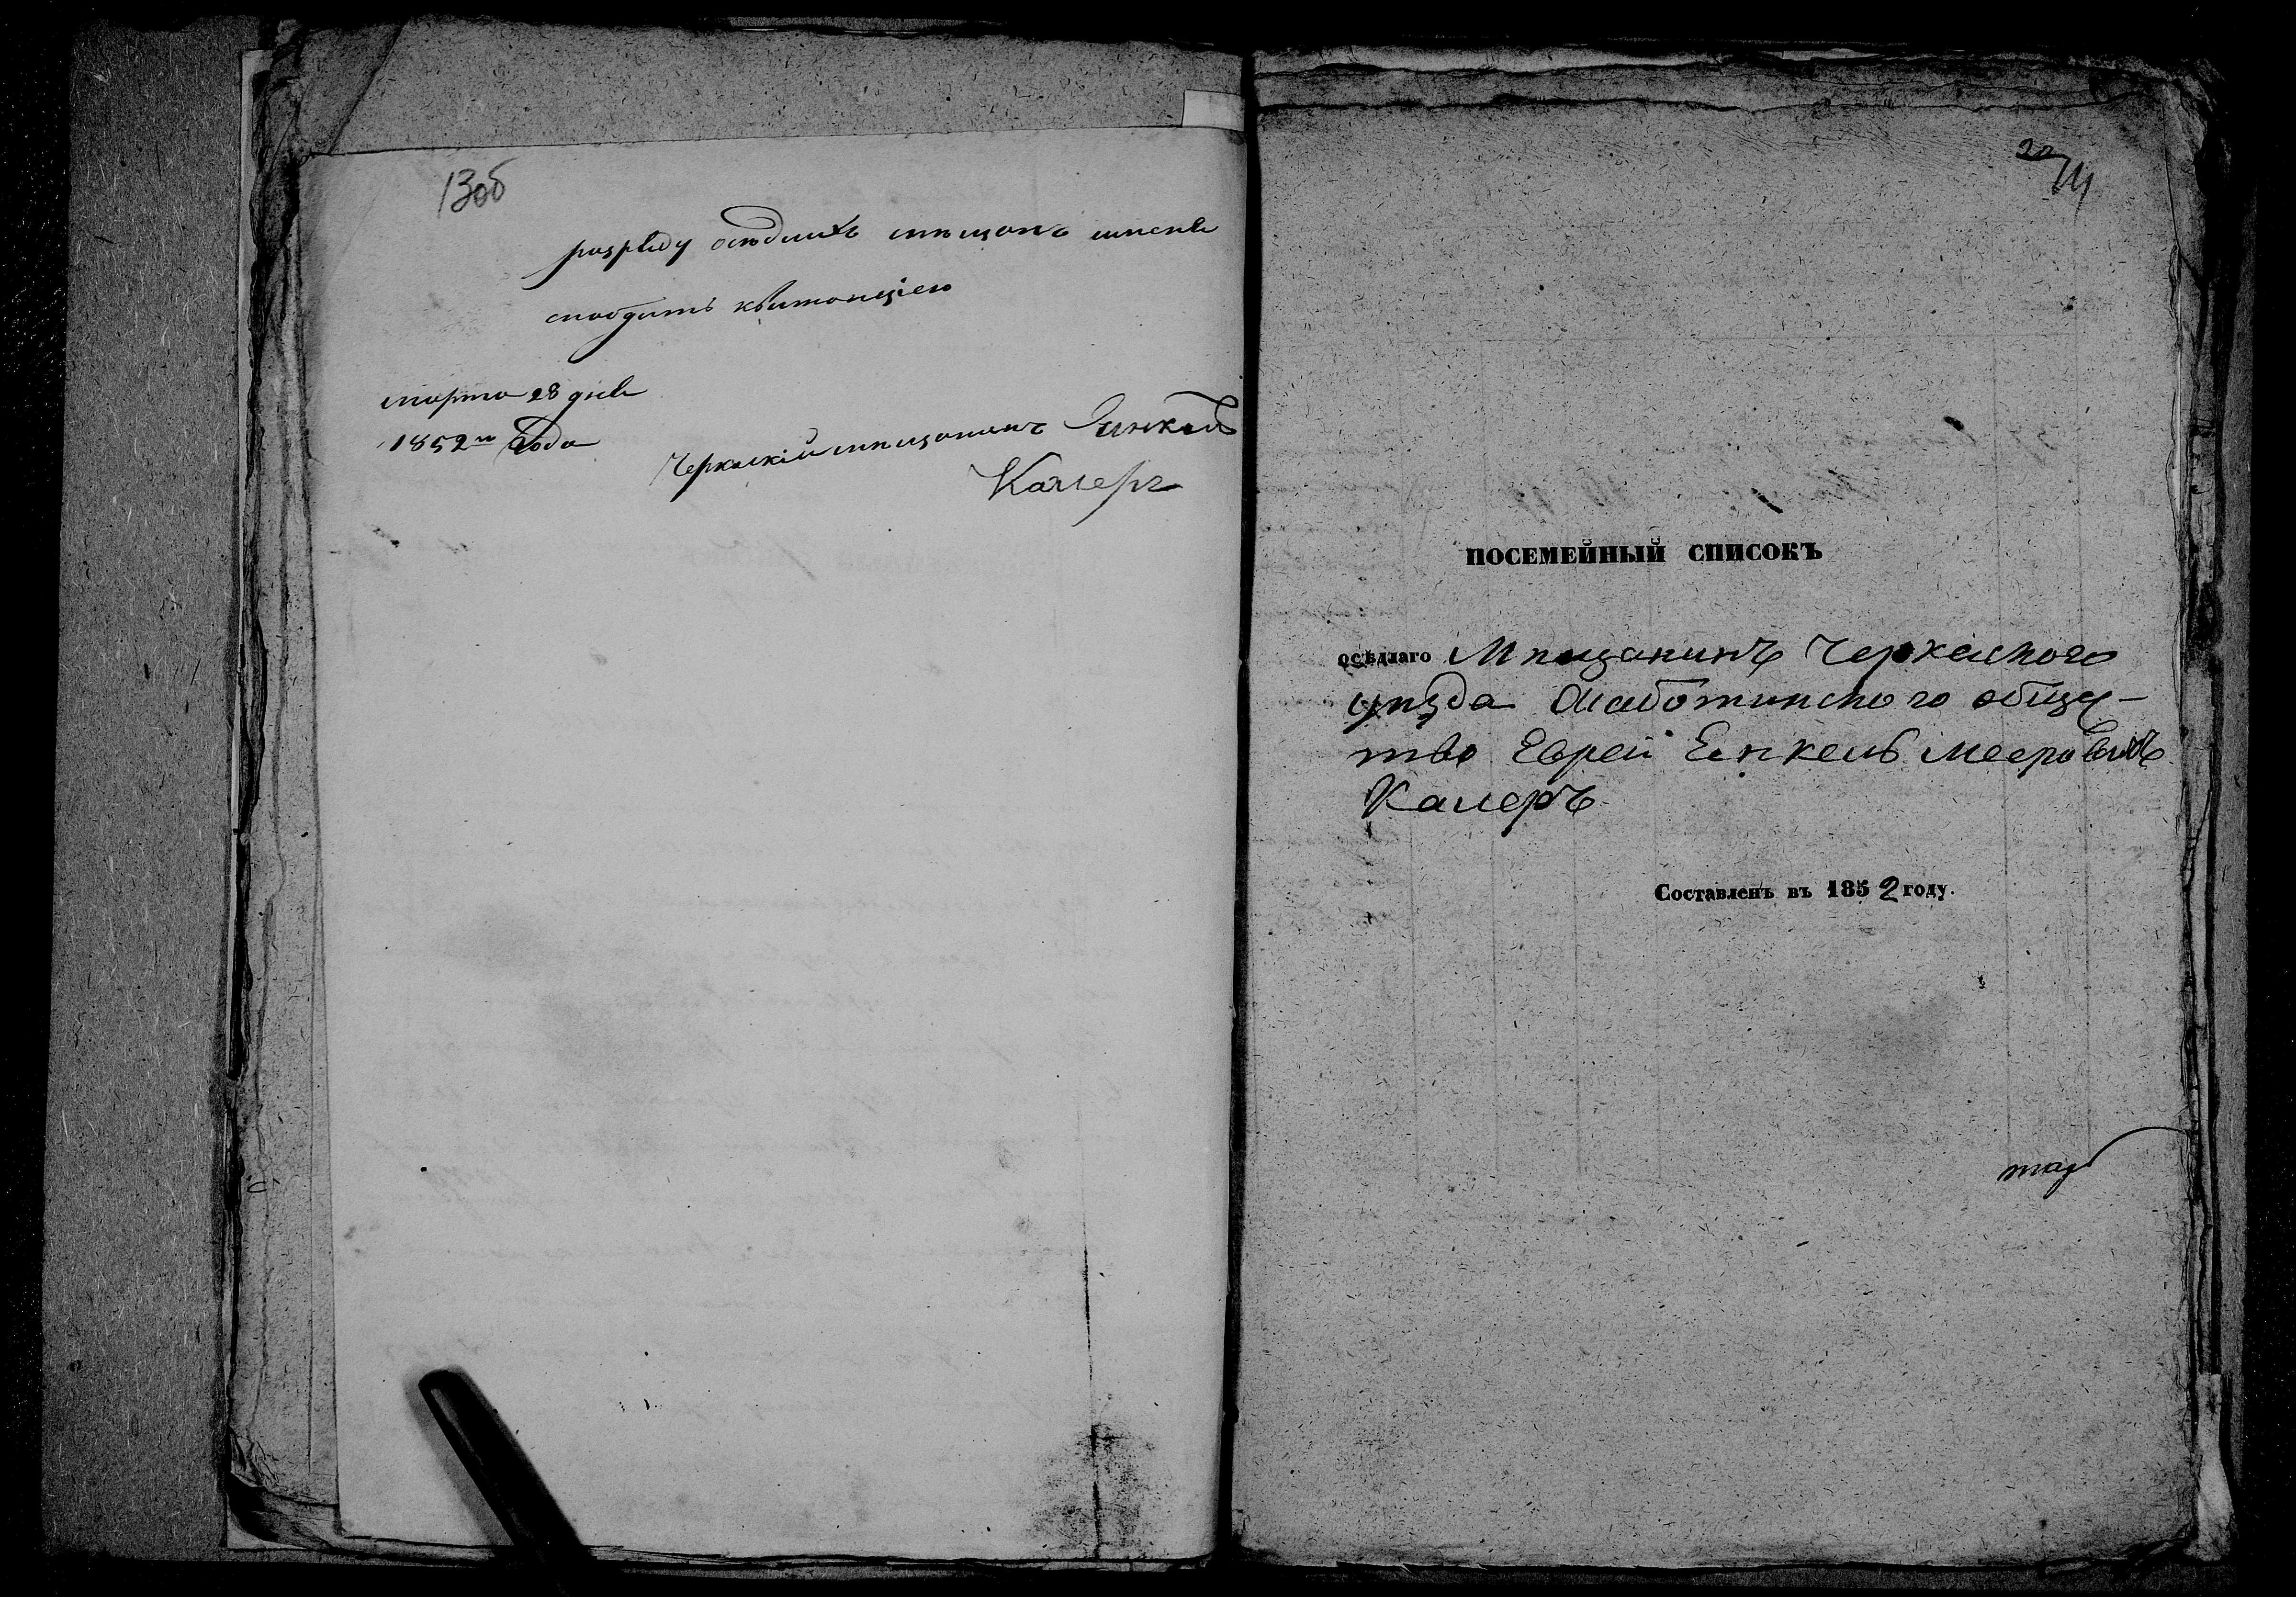 13об
разряду осѣдлихъ мѣщанъ и мене
снабдить квитанціею
марта 28 дня
1852го Года
Черкаскій мѣщанинъ Янкель
Калеръ
14
ПОСЕМЕЙНЫЙ СПИСОКЪ
осѣдлаго Мѣщанинъ Черкаского
уѣзда Жаботинского общес-
тво Еврей Енкель Мееровичъ
Калеръ
Составленъ въ 1852 году.